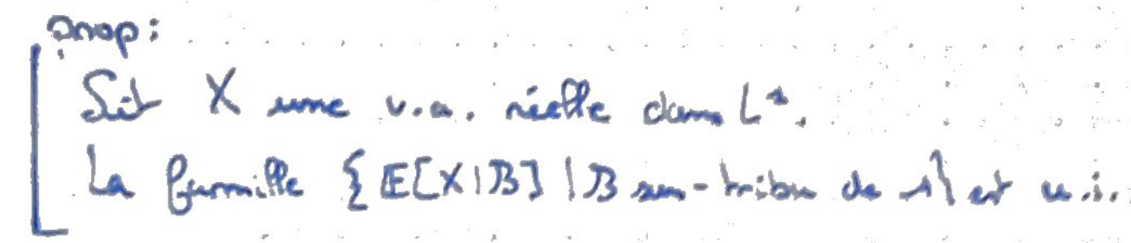 prop:
Soit X une v.a. réelle dans L¹.
La famille { E[X|B] | B sous-tribu de A} est u.i.